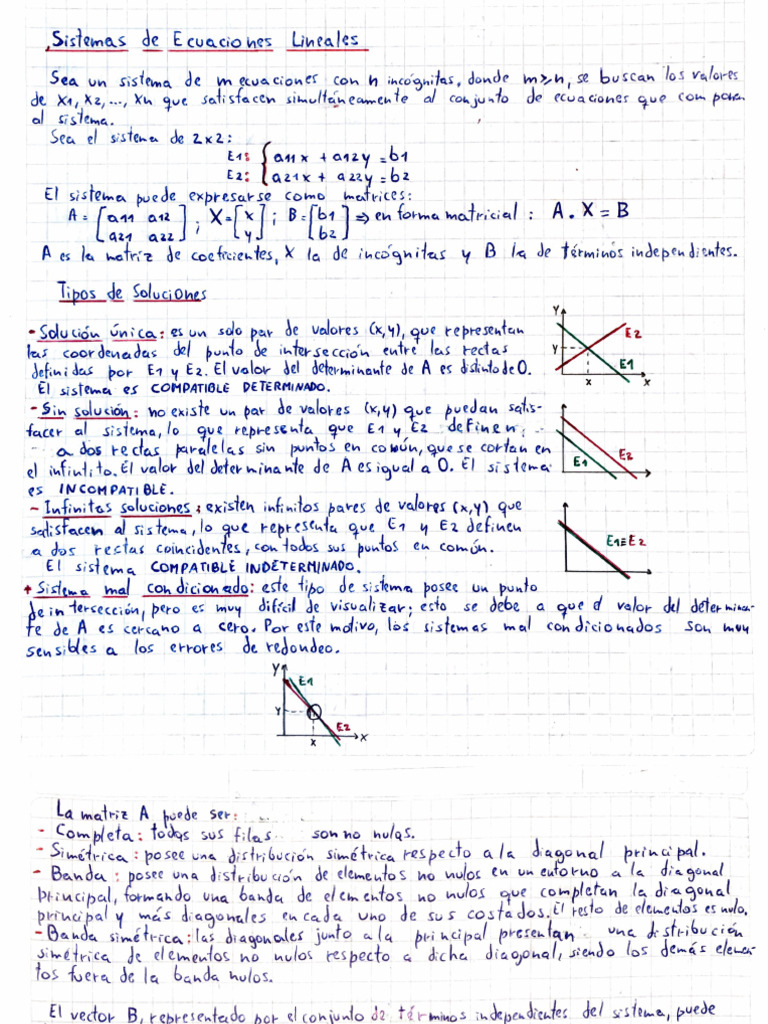 Sistemas de Ecuaciones Lineales
Sea un sistema de m ecuaciones con n incógnitas, donde m≥n, se buscan los valores
de x1, x2, ..., xn que satisfacen simultáneamente al conjunto de ecuaciones que componen
al sistema.
Sea el sistema de 2x2:
E1: { a11x + a12y = b1
E2: { a21x + a22y = b2
El sistema puede expresarse como matrices:
A = [a11 a12; a21 a22] ; X = [x; y] ; B = [b1; b2] ⇒ en forma matricial : A . X = B
A es la matriz de coeficientes, X la de incógnitas y B la de términos independientes.
Tipos de Soluciones
- Solución única: es un solo par de valores (x,y), que representan
las coordenadas del punto de intersección entre las rectas
definidas por E1 y E2. El valor del determinante de A es distinto de 0.
El sistema es COMPATIBLE DETERMINADO.
Y
E2
Y
E1
X
X
- Sin solución: no existe un par de valores (x,y) que puedan satis-
facer al sistema, lo que representa que E1 y E2 definen
a dos rectas paralelas sin puntos en común, que se cortan en
el infintito. El valor del determinante de A es igual a 0. El sistema
es INCOMPATIBLE.
E1
E2
- Infinitas soluciones: existen infinitos pares de valores (x,y) que
satisfacen al sistema, lo que representa que E1 y E2 definen
a dos rectas coincidentes, con todos sus puntos en común.
El sistema COMPATIBLE INDETERMINADO.
E1≡E2
+ Sistema mal condicionado: este tipo de sistema posee un punto
de intersección, pero es muy difícil de visualizar; esto se debe a que el valor del determinan-
te de A es cercano a cero. Por este motivo, los sistemas mal condicionados son muy
sensibles a los errores de redondeo.
Y
E1
Y
E2
X
X
La matriz A puede ser:
- Completa: todas sus filas son no nulas.
- Simétrica: posee una distribución simétrica respecto a la diagonal principal.
- Banda: posee una distribución de elementos no nulos en un entorno a la diagonal
principal, formando una banda de elementos no nulos que completan la diagonal
principal y más diagonales en cada uno de sus costados. El resto de elementos es nulo.
- Banda simétrica: las diagonales junto a la principal presentan una distribución
simétrica de elementos no nulos respecto a dicha diagonal, siendo los demás elemen-
tos fuera de la banda nulos.
El vector B, representado por el conjunto de términos independientes del sistema, puede